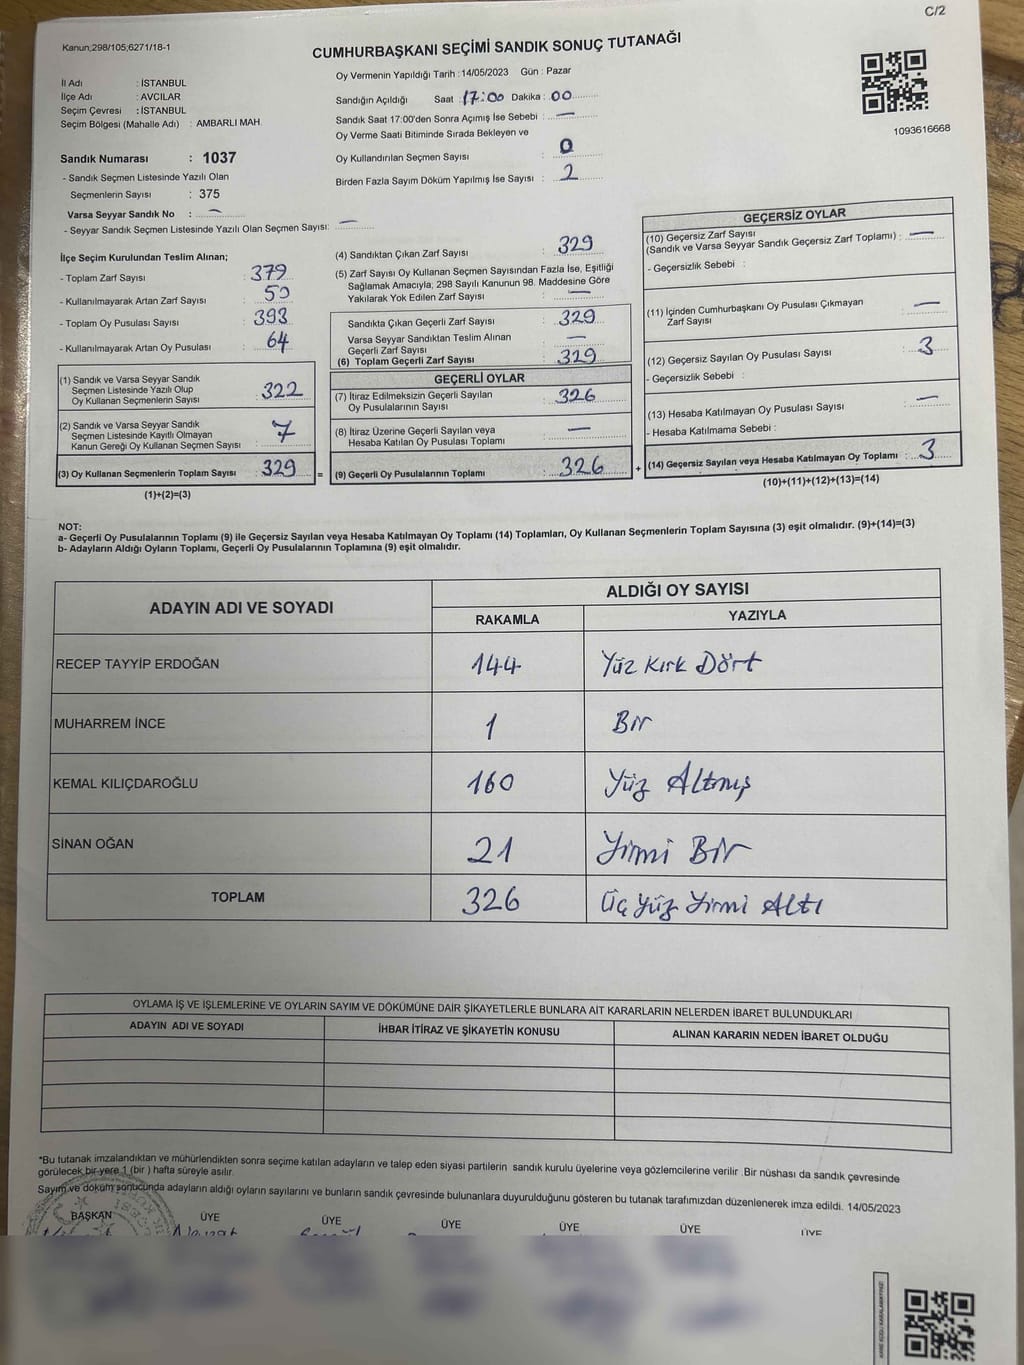 C/2
Kanun;298/105;6271/18-1
CUMHURBAŞKANI SEÇİMİ SANDIK SONUÇ TUTANAĞI
İl Adı : İSTANBUL
İlçe Adı : AVCILAR
Seçim Çevresi : İSTANBUL
Seçim Bölgesi (Mahalle Adı) : AMBARLI MAH.
Sandık Numarası : 1037
- Sandık Seçmen Listesinde Yazılı Olan
Seçmenlerin Sayısı : 375
Varsa Seyyar Sandık No : —
- Seyyar Sandık Seçmen Listesinde Yazılı Olan Seçmen Sayısı: —
Oy Vermenin Yapıldığı Tarih : 14/05/2023 Gün : Pazar
Sandığın Açıldığı Saat : 17:00 Dakika : 00
Sandık Saat 17:00'den Sonra Açımış İse Sebebi : —
Oy Verme Saati Bitiminde Sırada Bekleyen ve
Oy Kullandırılan Seçmen Sayısı : 0
Birden Fazla Sayım Döküm Yapılmış İse Sayısı : 2
1093616668
İlçe Seçim Kurulundan Teslim Alınan;
- Toplam Zarf Sayısı : 379
- Kullanılmayarak Artan Zarf Sayısı : 50
- Toplam Oy Pusulası Sayısı : 393
- Kullanılmayarak Artan Oy Pusulası : 64
(1) Sandık ve Varsa Seyyar Sandık
Seçmen Listesinde Yazılı Olup
Oy Kullanan Seçmenlerin Sayısı : 322
(2) Sandık ve Varsa Seyyar Sandık
Seçmen Listesinde Kayıtlı Olmayan
Kanun Gereği Oy Kullanan Seçmen Sayısı : 7
(3) Oy Kullanan Seçmenlerin Toplam Sayısı : 329 =
(1)+(2)=(3)
(4) Sandıktan Çıkan Zarf Sayısı : 329
(5) Zarf Sayısı Oy Kullanan Seçmen Sayısından Fazla İse, Eşitliği
Sağlamak Amacıyla; 298 Sayılı Kanunun 98. Maddesine Göre
Yakılarak Yok Edilen Zarf Sayısı : —
Sandıkta Çıkan Geçerli Zarf Sayısı : 329
Varsa Seyyar Sandıktan Teslim Alınan
Geçerli Zarf Sayısı : —
(6) Toplam Geçerli Zarf Sayısı : 329
GEÇERLİ OYLAR
(7) İtiraz Edilmeksizin Geçerli Sayılan
Oy Pusulalarının Sayısı : 326
(8) İtiraz Üzerine Geçerli Sayılan veya
Hesaba Katılan Oy Pusulası Toplamı : —
(9) Geçerli Oy Pusulalarının Toplamı : 326 +
GEÇERSİZ OYLAR
(10) Geçersiz Zarf Sayısı
(Sandık ve Varsa Seyyar Sandık Geçersiz Zarf Toplamı) : —
- Geçersizlik Sebebi :
(11) İçinden Cumhurbaşkanı Oy Pusulası Çıkmayan
Zarf Sayısı : —
(12) Geçersiz Sayılan Oy Pusulası Sayısı : 3
- Geçersizlik Sebebi :
(13) Hesaba Katılmayan Oy Pusulası Sayısı : —
- Hesaba Katılmama Sebebi :
(14) Geçersiz Sayılan veya Hesaba Katılmayan Oy Toplamı : 3
(10)+(11)+(12)+(13)=(14)
NOT:
a- Geçerli Oy Pusulalarının Toplamı (9) ile Geçersiz Sayılan veya Hesaba Katılmayan Oy Toplamı (14) Toplamları, Oy Kullanan Seçmenlerin Toplam Sayısına (3) eşit olmalıdır. (9)+(14)=(3)
b- Adayların Aldığı Oyların Toplamı, Geçerli Oy Pusulalarının Toplamına (9) eşit olmalıdır.
ADAYIN ADI VE SOYADI
ALDIĞI OY SAYISI
RAKAMLA YAZIYLA
RECEP TAYYİP ERDOĞAN 144 Yüz Kırk Dört
MUHARREM İNCE 1 Bir
KEMAL KILIÇDAROĞLU 160 Yüz Altmış
SİNAN OĞAN 21 Yirmi Bir
TOPLAM 326 Üç Yüz Yirmi Altı
OYLAMA İŞ VE İŞLEMLERİNE VE OYLARIN SAYIM VE DÖKÜMÜNE DAİR ŞİKAYETLERLE BUNLARA AİT KARARLARIN NELERDEN İBARET BULUNDUKLARI
ADAYIN ADI VE SOYADI İHBAR İTİRAZ VE ŞİKAYETİN KONUSU ALINAN KARARIN NEDEN İBARET OLDUĞU
*Bu tutanak imzalandıktan ve mühürlendikten sonra seçime katılan adayların ve talep eden siyasi partilerin sandık kurulu üyelerine veya gözlemcilerine verilir .Bir nüshası da sandık çevresinde
görülecek bir yere 1 (bir ) hafta süreyle asılır.
Sayım ve döküm sonucunda adayların aldığı oyların sayılarını ve bunların sandık çevresinde bulunanlara duyurulduğunu gösteren bu tutanak tarafımızdan düzenlenerek imza edildi. 14/05/2023
BAŞKAN ÜYE ÜYE ÜYE ÜYE ÜYE ÜYE